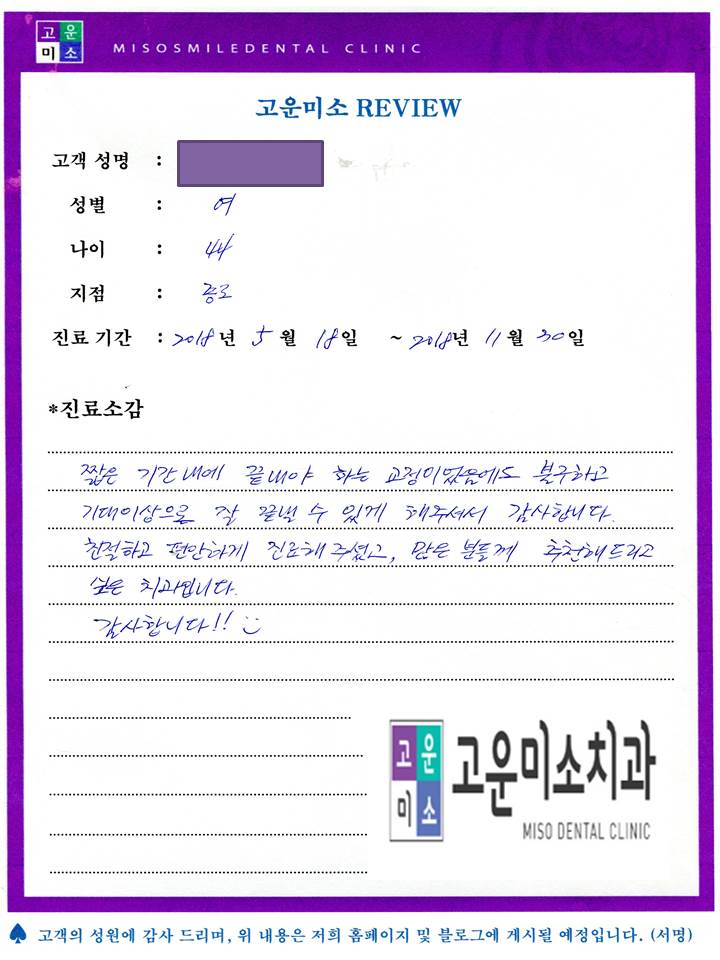 고운
미소
MISOSMILEDENTAL CLINIC
고운미소 REVIEW
고객 성명 :
성별 : 여
나이 : 44
지점 : 종로
진료 기간 : 2018년 5월 18일 ~ 2018년 11월 30일
*진료소감
짧은 기간내에 끝내야 하는 교정이었음에도 불구하고
기대이상으로 잘 끝낼 수 있게 해주셔서 감사합니다.
친절하고 편안하게 진료해 주셨고, 많은 분들께 추천해드리고
싶은 치과입니다.
감사합니다!!
고운
미소
고운미소치과
MISO DENTAL CLINIC
고객의 성원에 감사 드리며, 위 내용은 저희 홈페이지 및 블로그에 게시될 예정입니다. (서명)